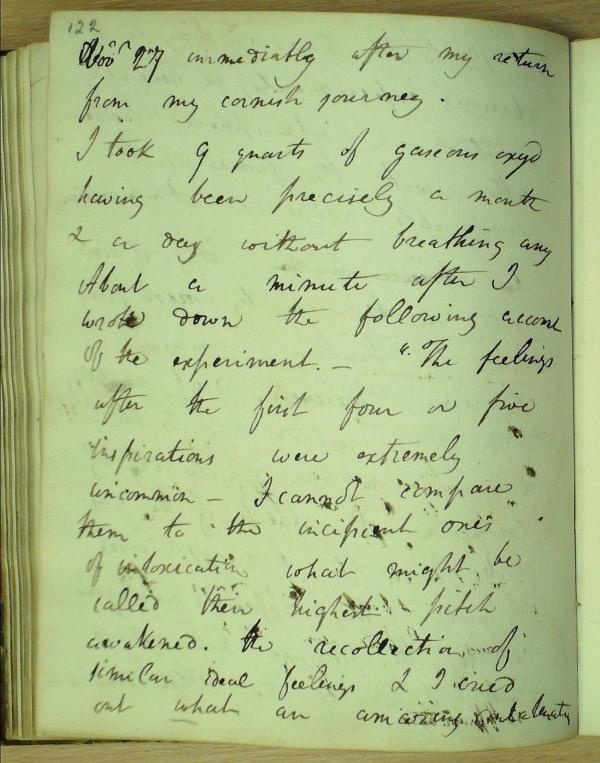 122
27 immediatly after my return
from my cornish journey.
I took 9 quarts of gaseous oxyd
having been precisely a month
& a day without breathing any
About a minute after I
wrote down the following account
of the experiment. — "The feelings
after the first four or five
inspirations were extremely
uncommon — I cannot compare
them to the incipient ones
of intoxication what might be
called their highest pitch
awakened. the recollection of
similar ideal feelings & I cried
out what an amazing